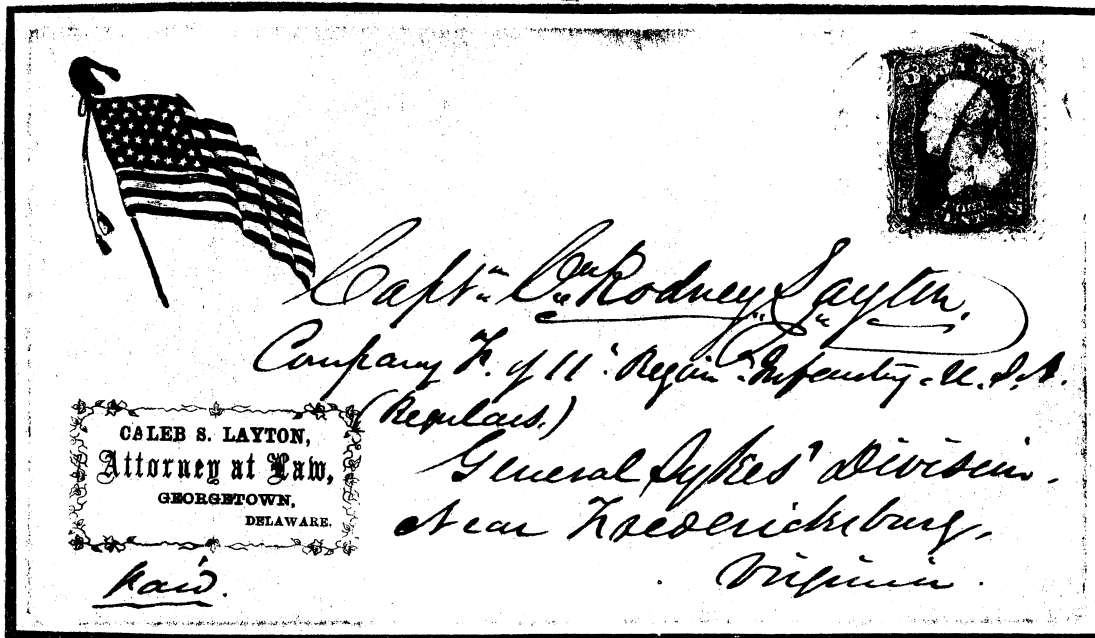 3 3
CENTS
Captn. Cn. Rodney Layton,
Company F. of 11' Regim't Infantry. U.S.A.
(Regulars.)
General Sykes' Division.
Near Fredericksburg,
Virginia.
CALEB S. LAYTON,
Attorney at Law,
GEORGETOWN,
DELAWARE.
Paid.